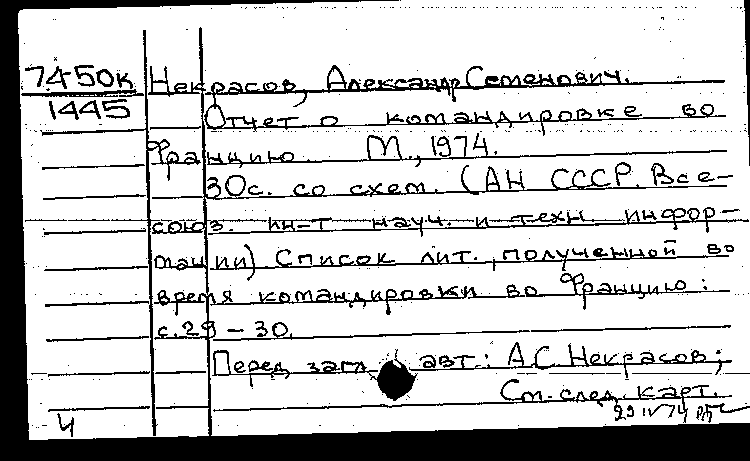 74-50к Некрасов, Александр Семенович.
1445 Отчет о командировке во
Францию. М., 1974.
30с. со схем. (АН СССР. Все-
союз. ин-т науч. и техн. инфор-
мации) Список лит., полученной во
время командировки во Францию:
с. 29 - 30.
Перед загл. авт.: А.С. Некрасов;
См. след. карт.
Ч 29 IV 74